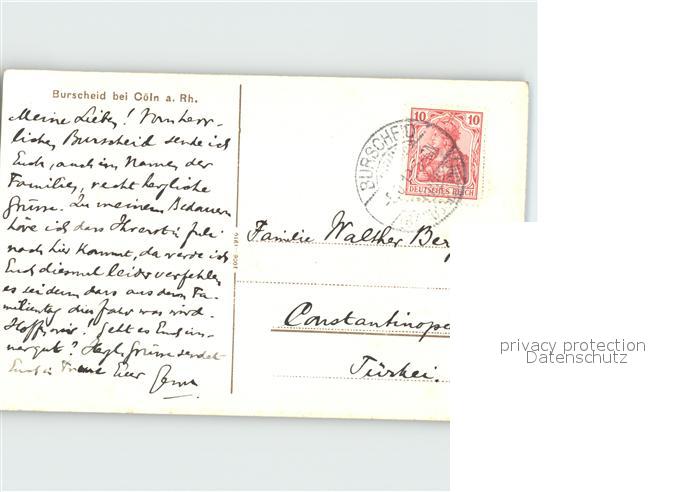 Burscheid bei Cöln a. Rh.
Meine Lieben! Vom herr-
lichen Burscheid sende ich
Euch, auch im Namen der
Familien, recht herzliche
Grüsse. Zu meinem Bedauern
höre ich dass Ihr erst im Juli
nach hier kommt, da werde ich
Euch diesmal leider verfehlen
es sei denn dass aus dem Fa-
milientag dies Jahr was wird.
Hoffen wir! Geht es Euch im-
mer gut? Herzl. Grüsse sendet
Euch in Treue Euer
10 10
DEUTSCHES REICH
BURSCHEID
Familie Walther Ber
Constantinope
Türkei.
privacy protection
Datenschutz